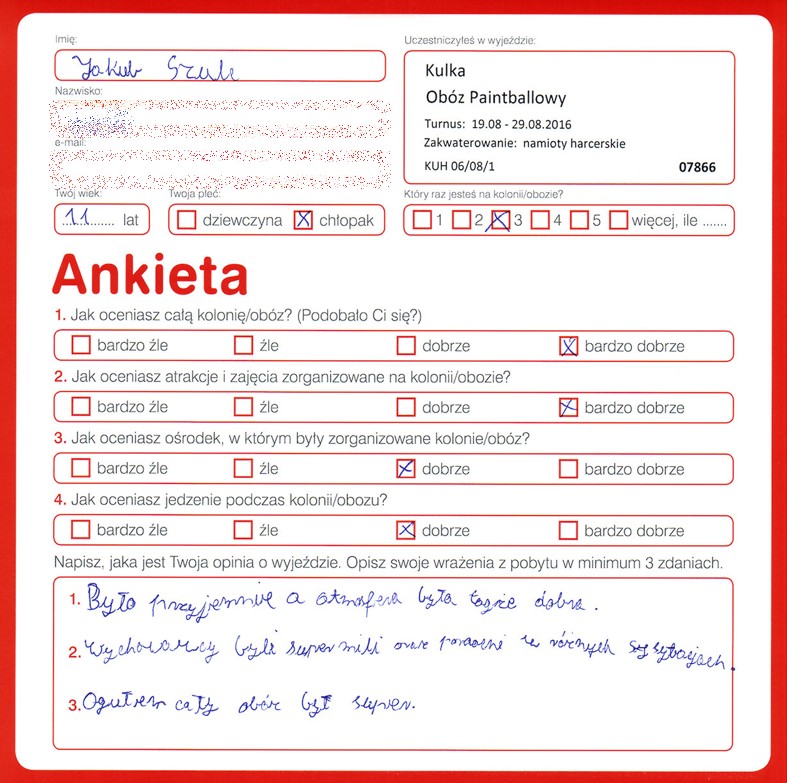 Imię:
Jakub Szulc
Uczestniczyłeś w wyjeździe:
Kulka
Obóz Paintballowy
Turnus: 19.08 - 29.08.2016
Zakwaterowanie: namioty harcerskie
KUH 06/08/1 07866
Nazwisko:
e-mail:
Twój wiek:
11 lat
Twoja płeć:
dziewczyna chłopak
Który raz jesteś na kolonii/obozie?
1 2 3 4 5 więcej, ile .......
Ankieta
1. Jak oceniasz całą kolonię/obóz? (Podobało Ci się?)
bardzo źle źle dobrze bardzo dobrze
2. Jak oceniasz atrakcje i zajęcia zorganizowane na kolonii/obozie?
bardzo źle źle dobrze bardzo dobrze
3. Jak oceniasz ośrodek, w którym były zorganizowane kolonie/obóz?
bardzo źle źle dobrze bardzo dobrze
4. Jak oceniasz jedzenie podczas kolonii/obozu?
bardzo źle źle dobrze bardzo dobrze
Napisz, jaka jest Twoja opinia o wyjeździe. Opisz swoje wrażenia z pobytu w minimum 3 zdaniach.
1. Było przyjemnie a atmosfera była dobra.
2. Wychowawcy byli super mili oraz pomocni w różnych sytuacjach.
3. Ogułem cały obóz był super.